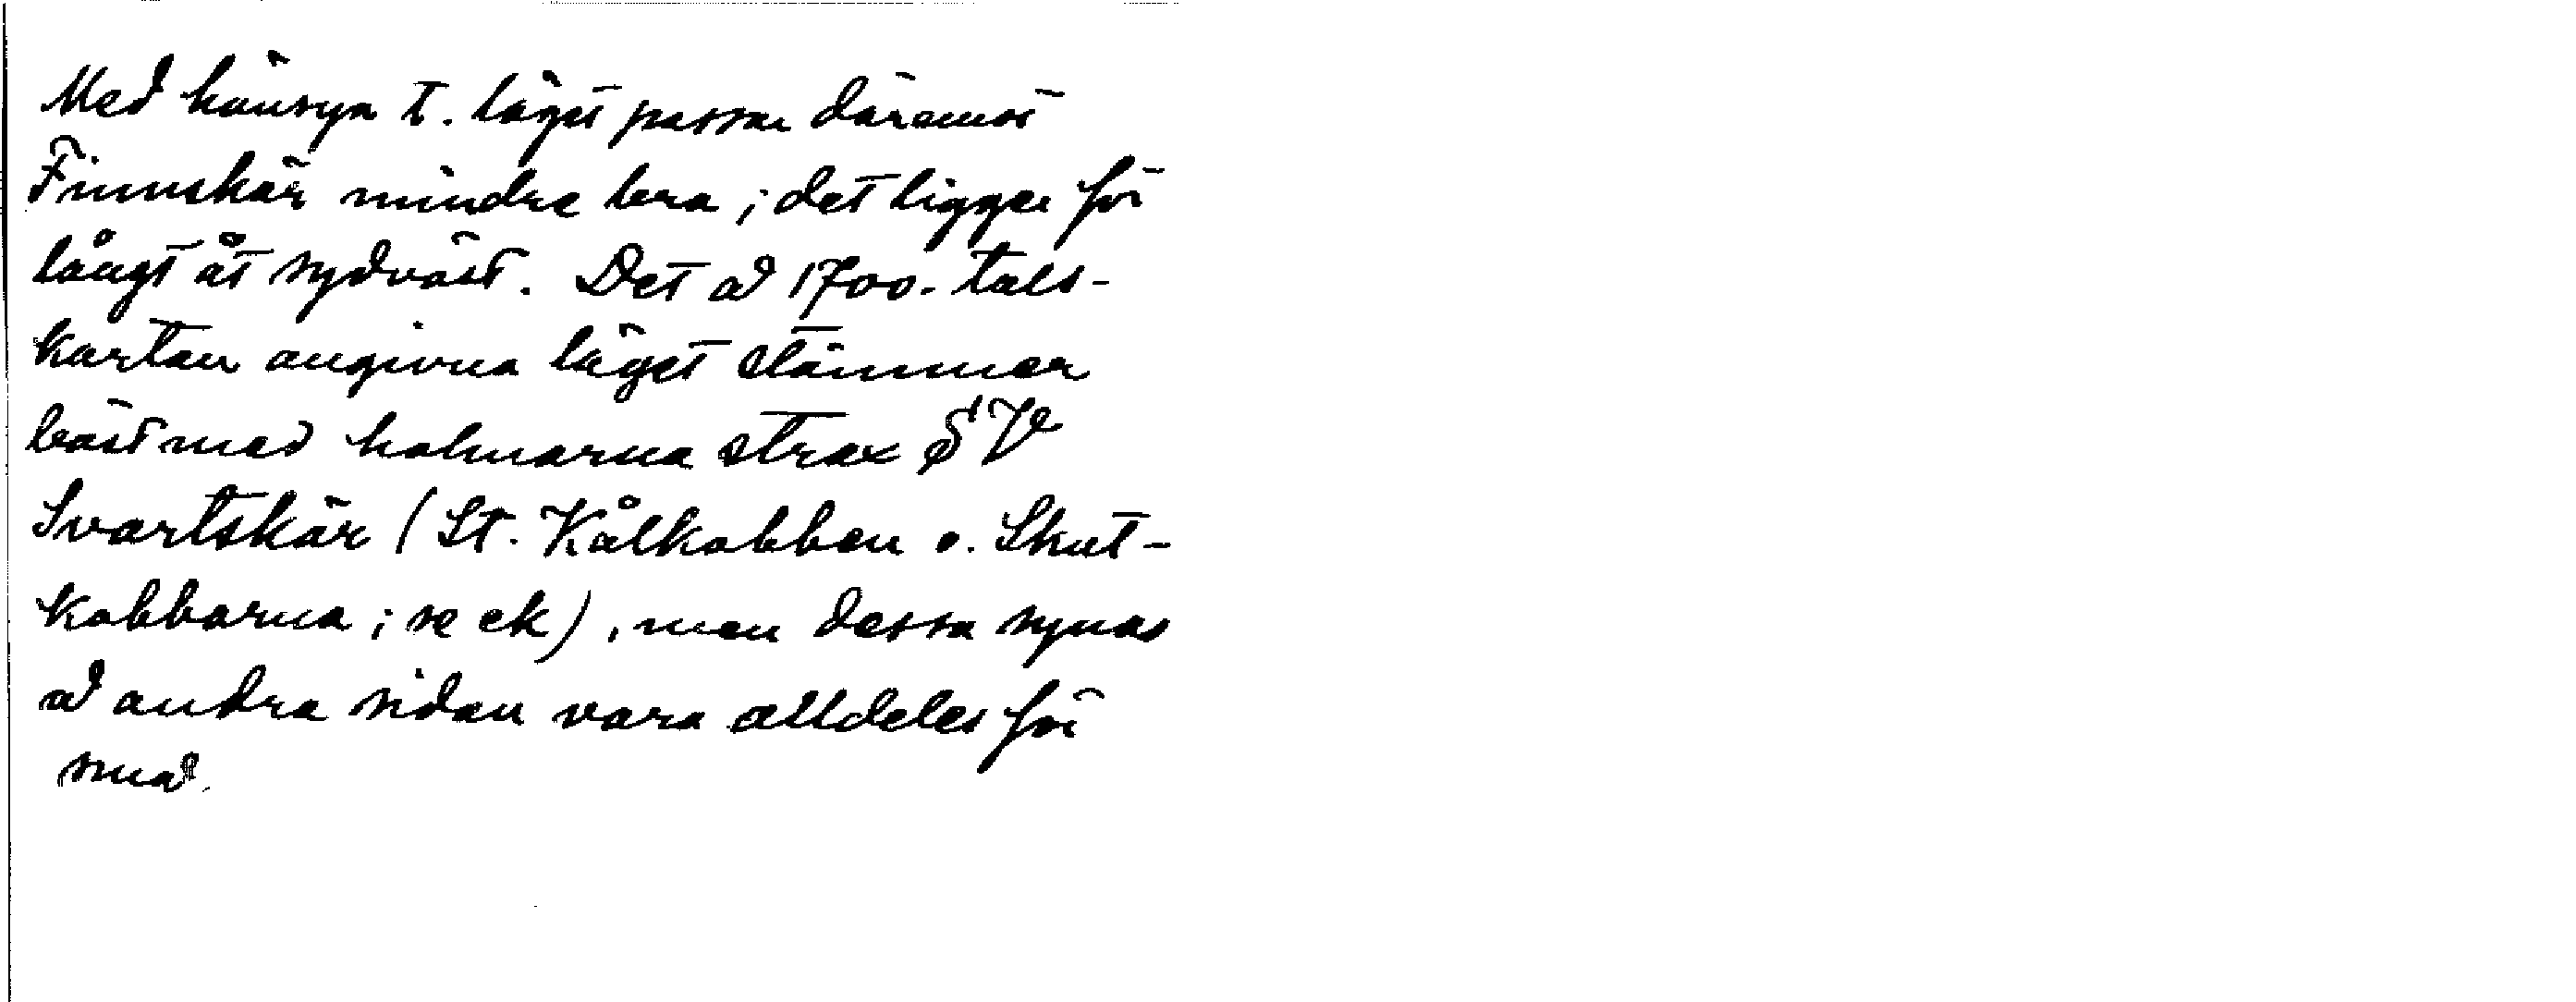 Med hänsyn t. läget passar däremot
Finnskär mindre bra; det ligger för
långt åt sydväst. Det å 1700-tals-
kartan angivna läget stämmer
bäst med holmarna strax SV
Svartskär (St. Kålkobben o. Skut-
kobbarna; se ek), men dessa synas
å andra sidan vara alldeles för
små.